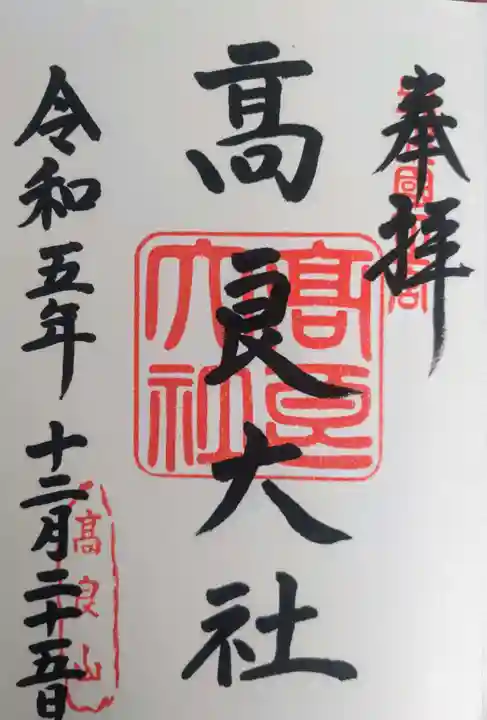 奉拝
髙良大社
髙良大社
令和五年 十二月二十五日
高良山